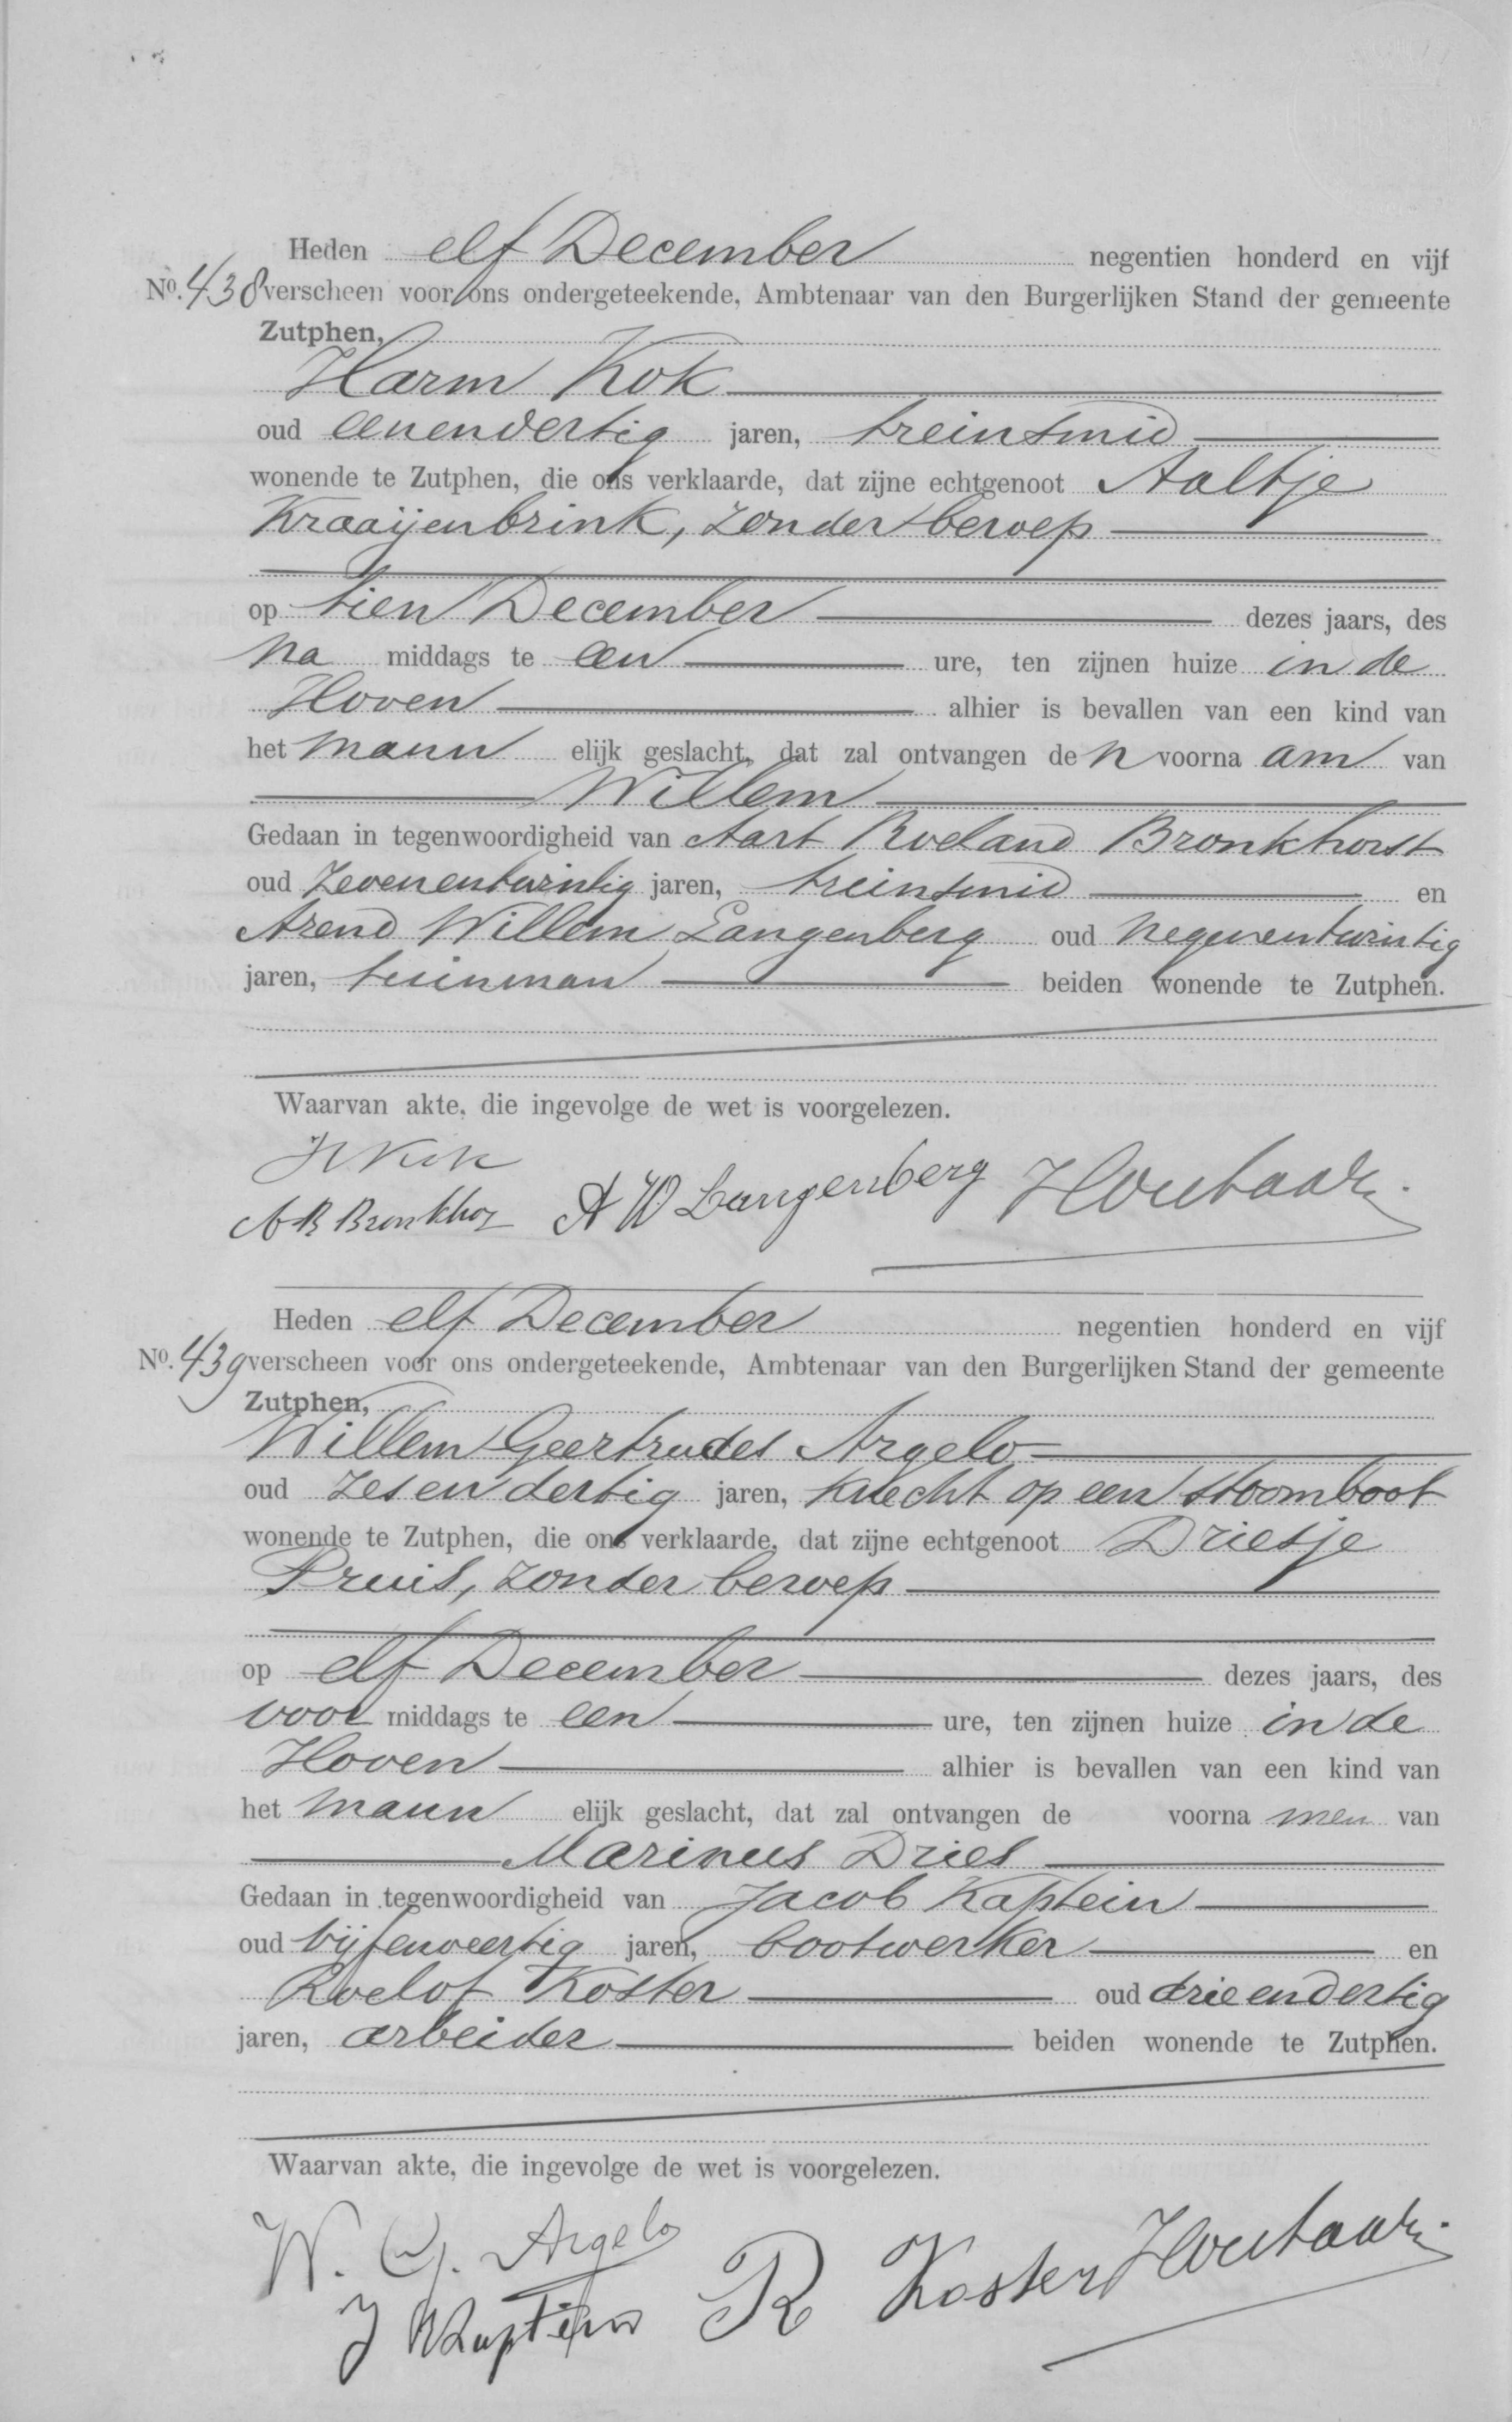 Heden elf December negentien honderd en vijf
No. 438 verscheen voor ons ondergeteekende, Ambtenaar van den Burgerlijken Stand der gemeente
Zutphen,
Harm Kok
oud eenendertig jaren, treinsmid
wonende te Zutphen, die ons verklaarde, dat zijne echtgenoot Aaltje
Kraaijenbrink, zonder beroep
op tien December dezes jaars, des
na middags te een ure, ten zijnen huize in de
Hoven alhier is bevallen van een kind van
het mann elijk geslacht, dat zal ontvangen de n voorna am van
Willem
Gedaan in tegenwoordigheid van Aart Roeland Bronkhorst
oud zevenentwintig jaren, treinsmid en
Arend Willem Langenberg oud negenentwintig
jaren, tuinman beiden wonende te Zutphen.
Waarvan akte, die ingevolge de wet is voorgelezen.
H Kok
A R Bronkhor A W Langenberg Houbaar.
Heden elf December negentien honderd en vijf
No. 439 verscheen voor ons ondergeteekende, Ambtenaar van den Burgerlijken Stand der gemeente
Zutphen,
Willem Geertrudes Argelo
oud zesendertig jaren, knecht op een stoomboot
wonende te Zutphen, die ons verklaarde, dat zijne echtgenoot Driesje
Pruis, zonder beroep
op elf December dezes jaars, des
voor middags te een ure, ten zijnen huize in de
Hoven alhier is bevallen van een kind van
het mann elijk geslacht, dat zal ontvangen de voorna men van
Marinus Dries
Gedaan in tegenwoordigheid van Jacob Kaptein
oud vijfenveertig jaren, bootwerker en
Roelof Koster oud drieendertig
jaren, arbeider beiden wonende te Zutphen.
Waarvan akte, die ingevolge de wet is voorgelezen.
W. G. Argelo
J Kaptein R Koster Houbaar.